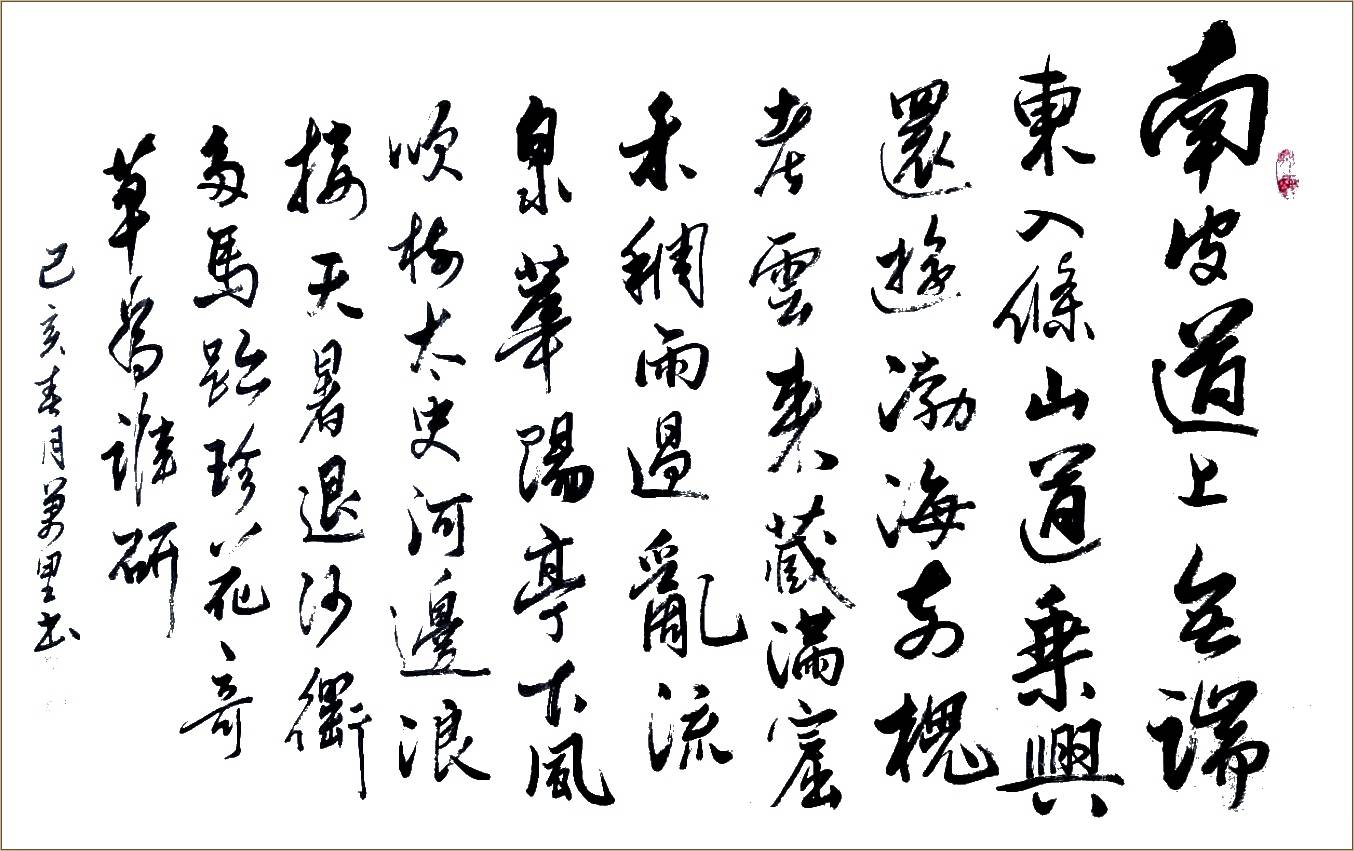 南皮道上無端
東入條山道乘興
還遊渤海前槐
老雲來藏滿窟
禾稠雨過亂流
泉華陽亭下風
吹樹太史河邊浪
接天暑退沙衢
多馬跡珍花奇
草為誰研
己亥春月萬里書